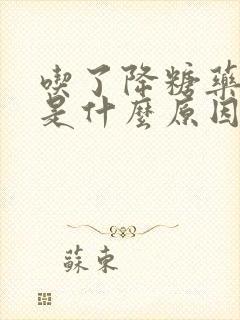 喫了降糖藥
是什麼原因
蘇東